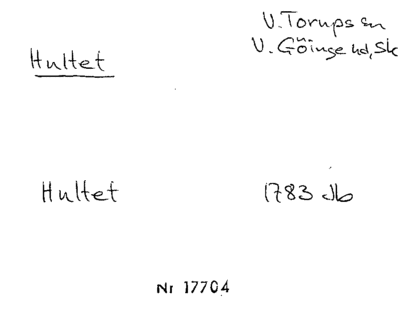 V. Torups sn
V. Göinge hd, Sk
Hultet
Hultet 1783 Jb
Nr 17704